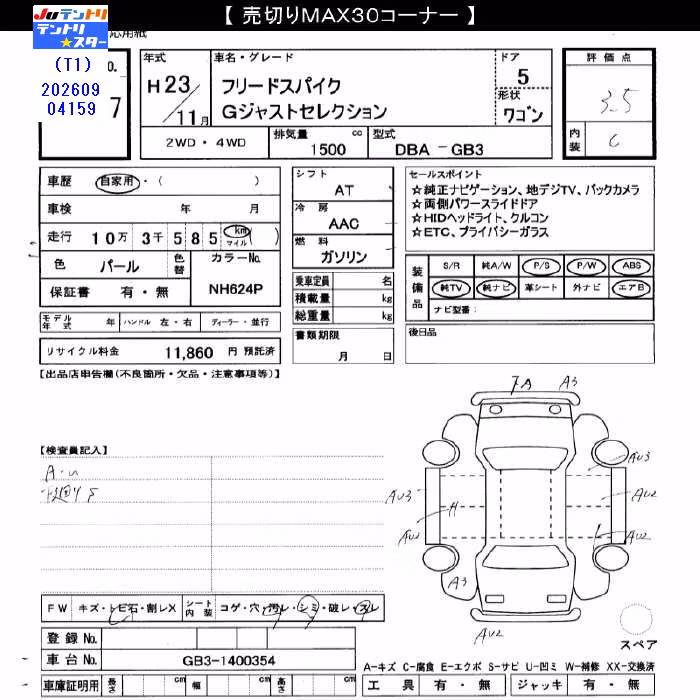 【 売切りMAX30コーナー 】
JUテントリ
テントリ★スター
応用紙
(T1)
202609
04159
o.
7
年式
H23/11月
車名・グレード
フリードスパイク
Gジャストセレクション
ドア
5
形状
ワゴン
評価点
3.5
内装
C
2WD・4WD
排気量 1500 cc
型式 DBA-GB3
車歴 自家用・( )
車検 年 月
走行 10万3千585 km マイル ( )
色 パール 色替 カラーNo. NH624P
保証書 有・無
シフト AT
冷房 AAC
燃料 ガソリン
乗車定員 名
積載量 kg
総重量 kg
書類期限
月 日
セールスポイント
☆純正ナビゲーション、地デジTV、バックカメラ
☆両側パワースライドドア
☆HIDヘッドライト、クルコン
☆ETC、プライバシーガラス
装備品
S/R 純A/W P/S P/W ABS
純TV 純ナビ 革シート 外ナビ エアB
ナビ型番:
後日品
モデル年式 年 ハンドル 左・右 ディーラー・並行
リサイクル料金 11,860 円 預託済
【出品店申告欄(不良箇所・欠品・注意事項等)】
【検査員記入】
A・U
下廻りS
7A A3
AU3 AU3
H AU2
AU2 AU2
A3
AU2
スペア
FW キズ・トビ石・割レX シート内装 コゲ・穴・汚レ・シミ・破レ・スレ
登録 No.
車台 No. GB3-1400354
車庫証明用 長さ cm 幅 cm 高さ cm
A-キズ C-腐食 E-エクボ S-サビ U-凹ミ W-補修 XX-交換済
工具 有・無 ジャッキ 有・無